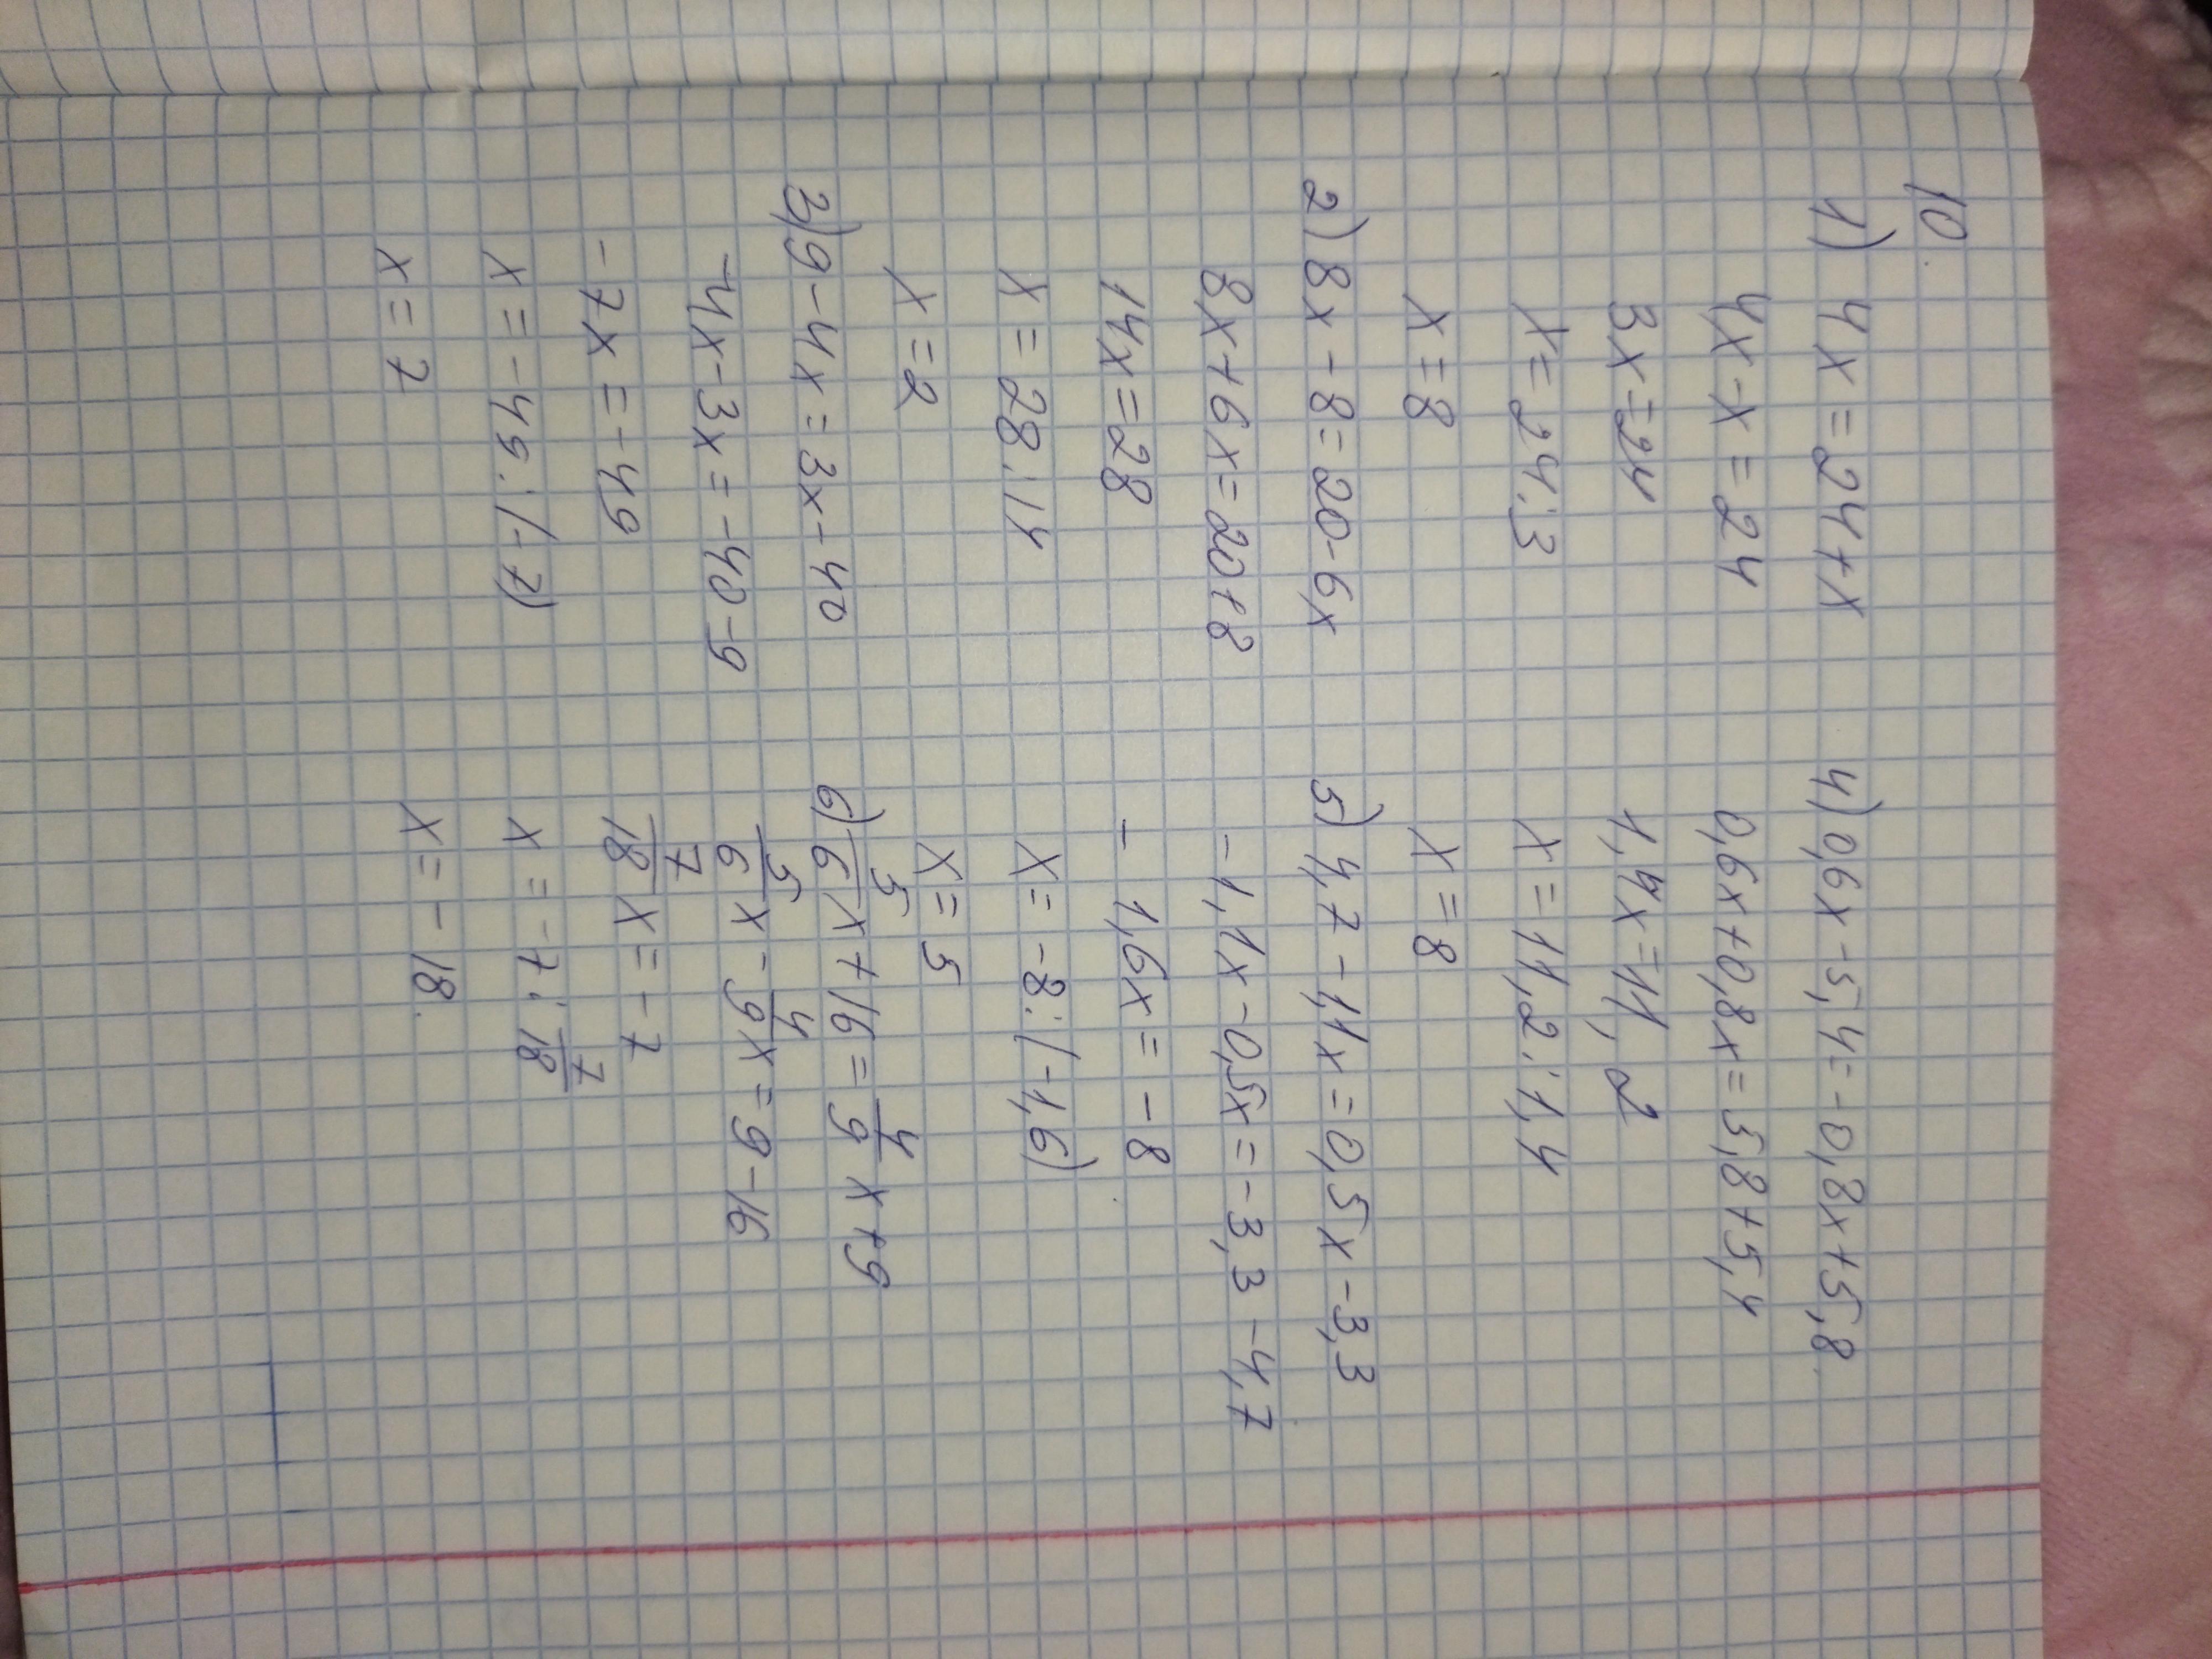 10.
1) 4x = 24 + x
4x - x = 24
3x = 24
x = 24 : 3
x = 8
2) 8x - 8 = 20 - 6x
8x + 6x = 20 + 8
14x = 28
x = 28 : 14
x = 2
3) 9 - 4x = 3x - 40
-4x - 3x = -40 - 9
-7x = -49
x = -49 : (-7)
x = 7
4) 0,6x - 5,4 = -0,8x + 5,8
0,6x + 0,8x = 5,8 + 5,4
1,4x = 11,2
x = 11,2 : 1,4
x = 8
5) 4,7 - 1,1x = 0,5x - 3,3
-1,1x - 0,5x = -3,3 - 4,7
-1,6x = -8
x = -8 : (-1,6)
x = 5
6) 5/6 x + 16 = 4/9 x + 9
5/6 x - 4/9 x = 9 - 16
7/18 x = -7
x = -7 : 7/18
x = -18.